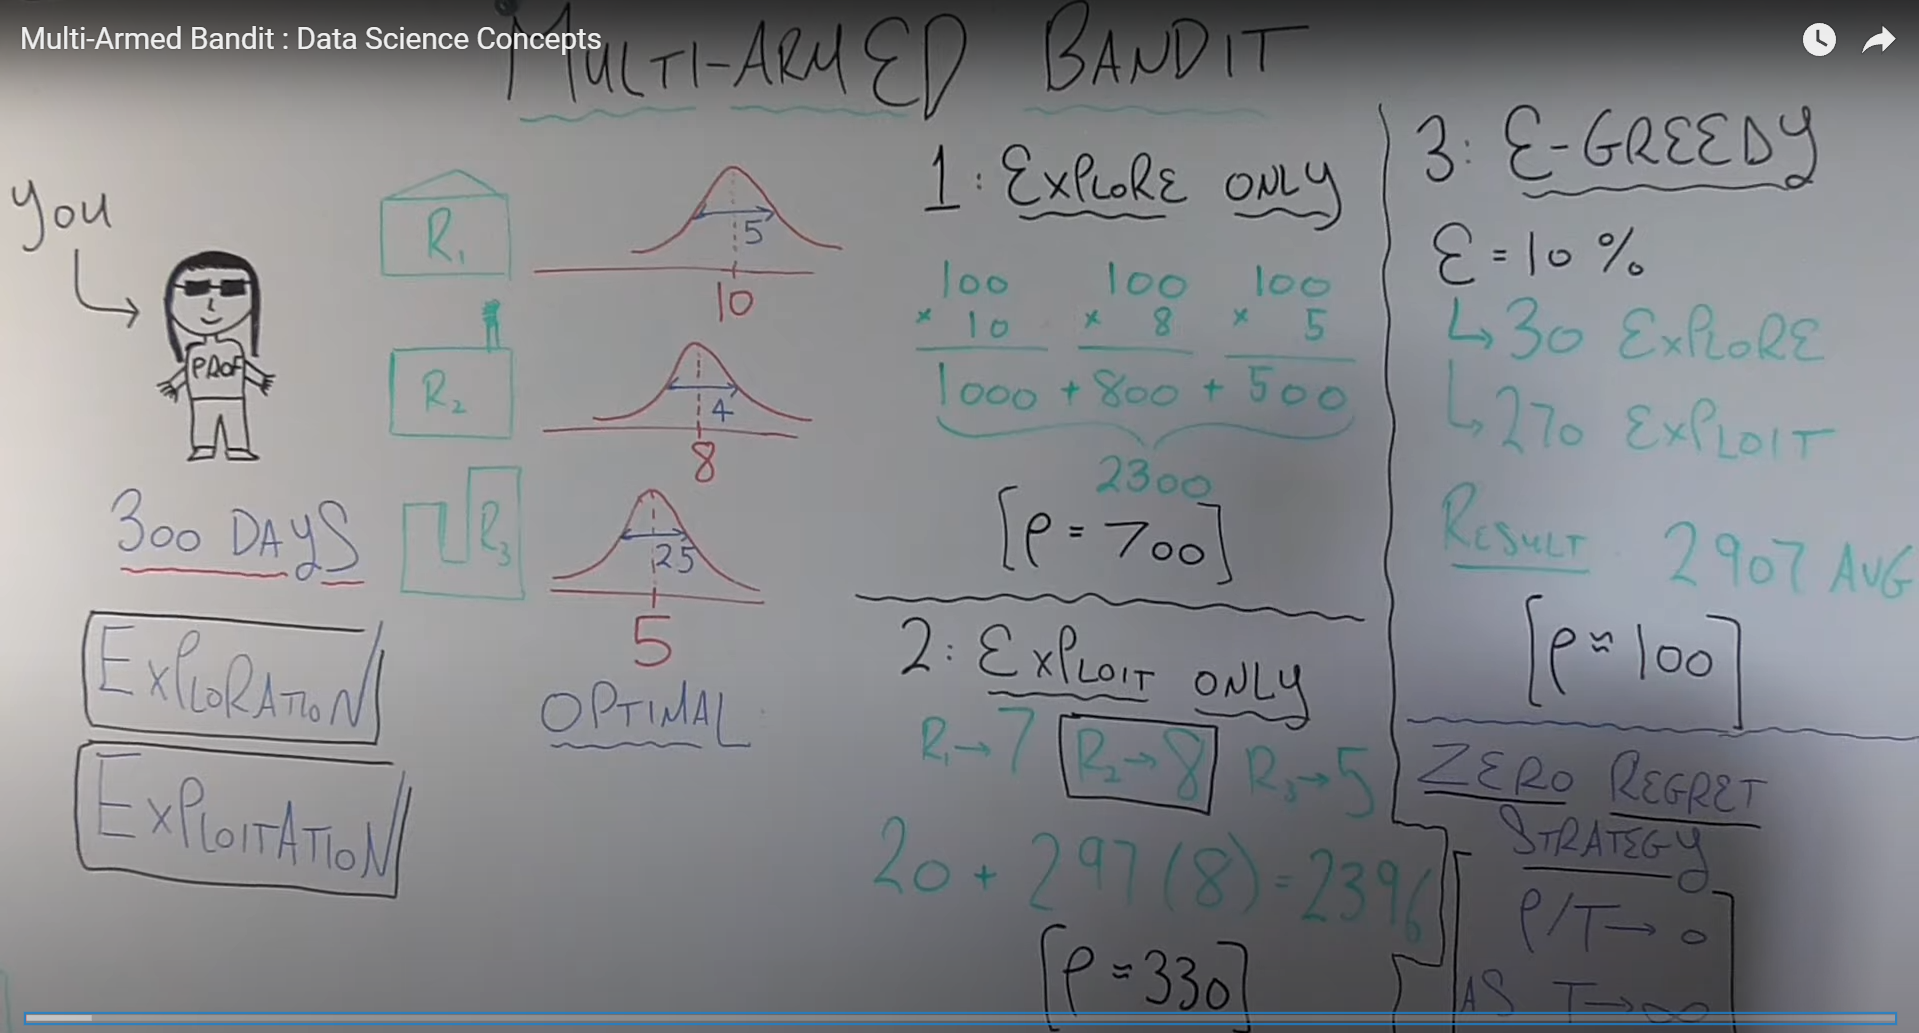 Multi-Armed Bandit : Data Science Concepts
MULTI-ARMED BANDIT
YOU
PROF
300 DAYS
EXPLORATION
EXPLOITATION
R₁
5
10
R₂
4
8
R₃
2.5
5
OPTIMAL
1: EXPLORE ONLY
100 100 100
× 10 × 8 × 5
1000 + 800 + 500
2300
[ρ = 700]
2: EXPLOIT ONLY
R₁→7 R₂→8 R₃→5
20 + 297(8) = 2396
[ρ ≈ 330]
3: ε-GREEDY
ε = 10 %
↳ 30 EXPLORE
↳ 270 EXPLOIT
RESULT 2907 AVG
[ρ ≈ 100]
ZERO REGRET
STRATEGY
ρ/T → 0
AS T → ∞